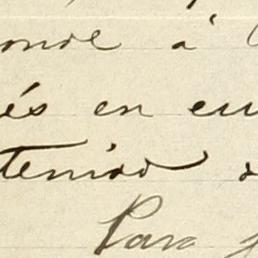 onde à
és en eu
tenido
Para